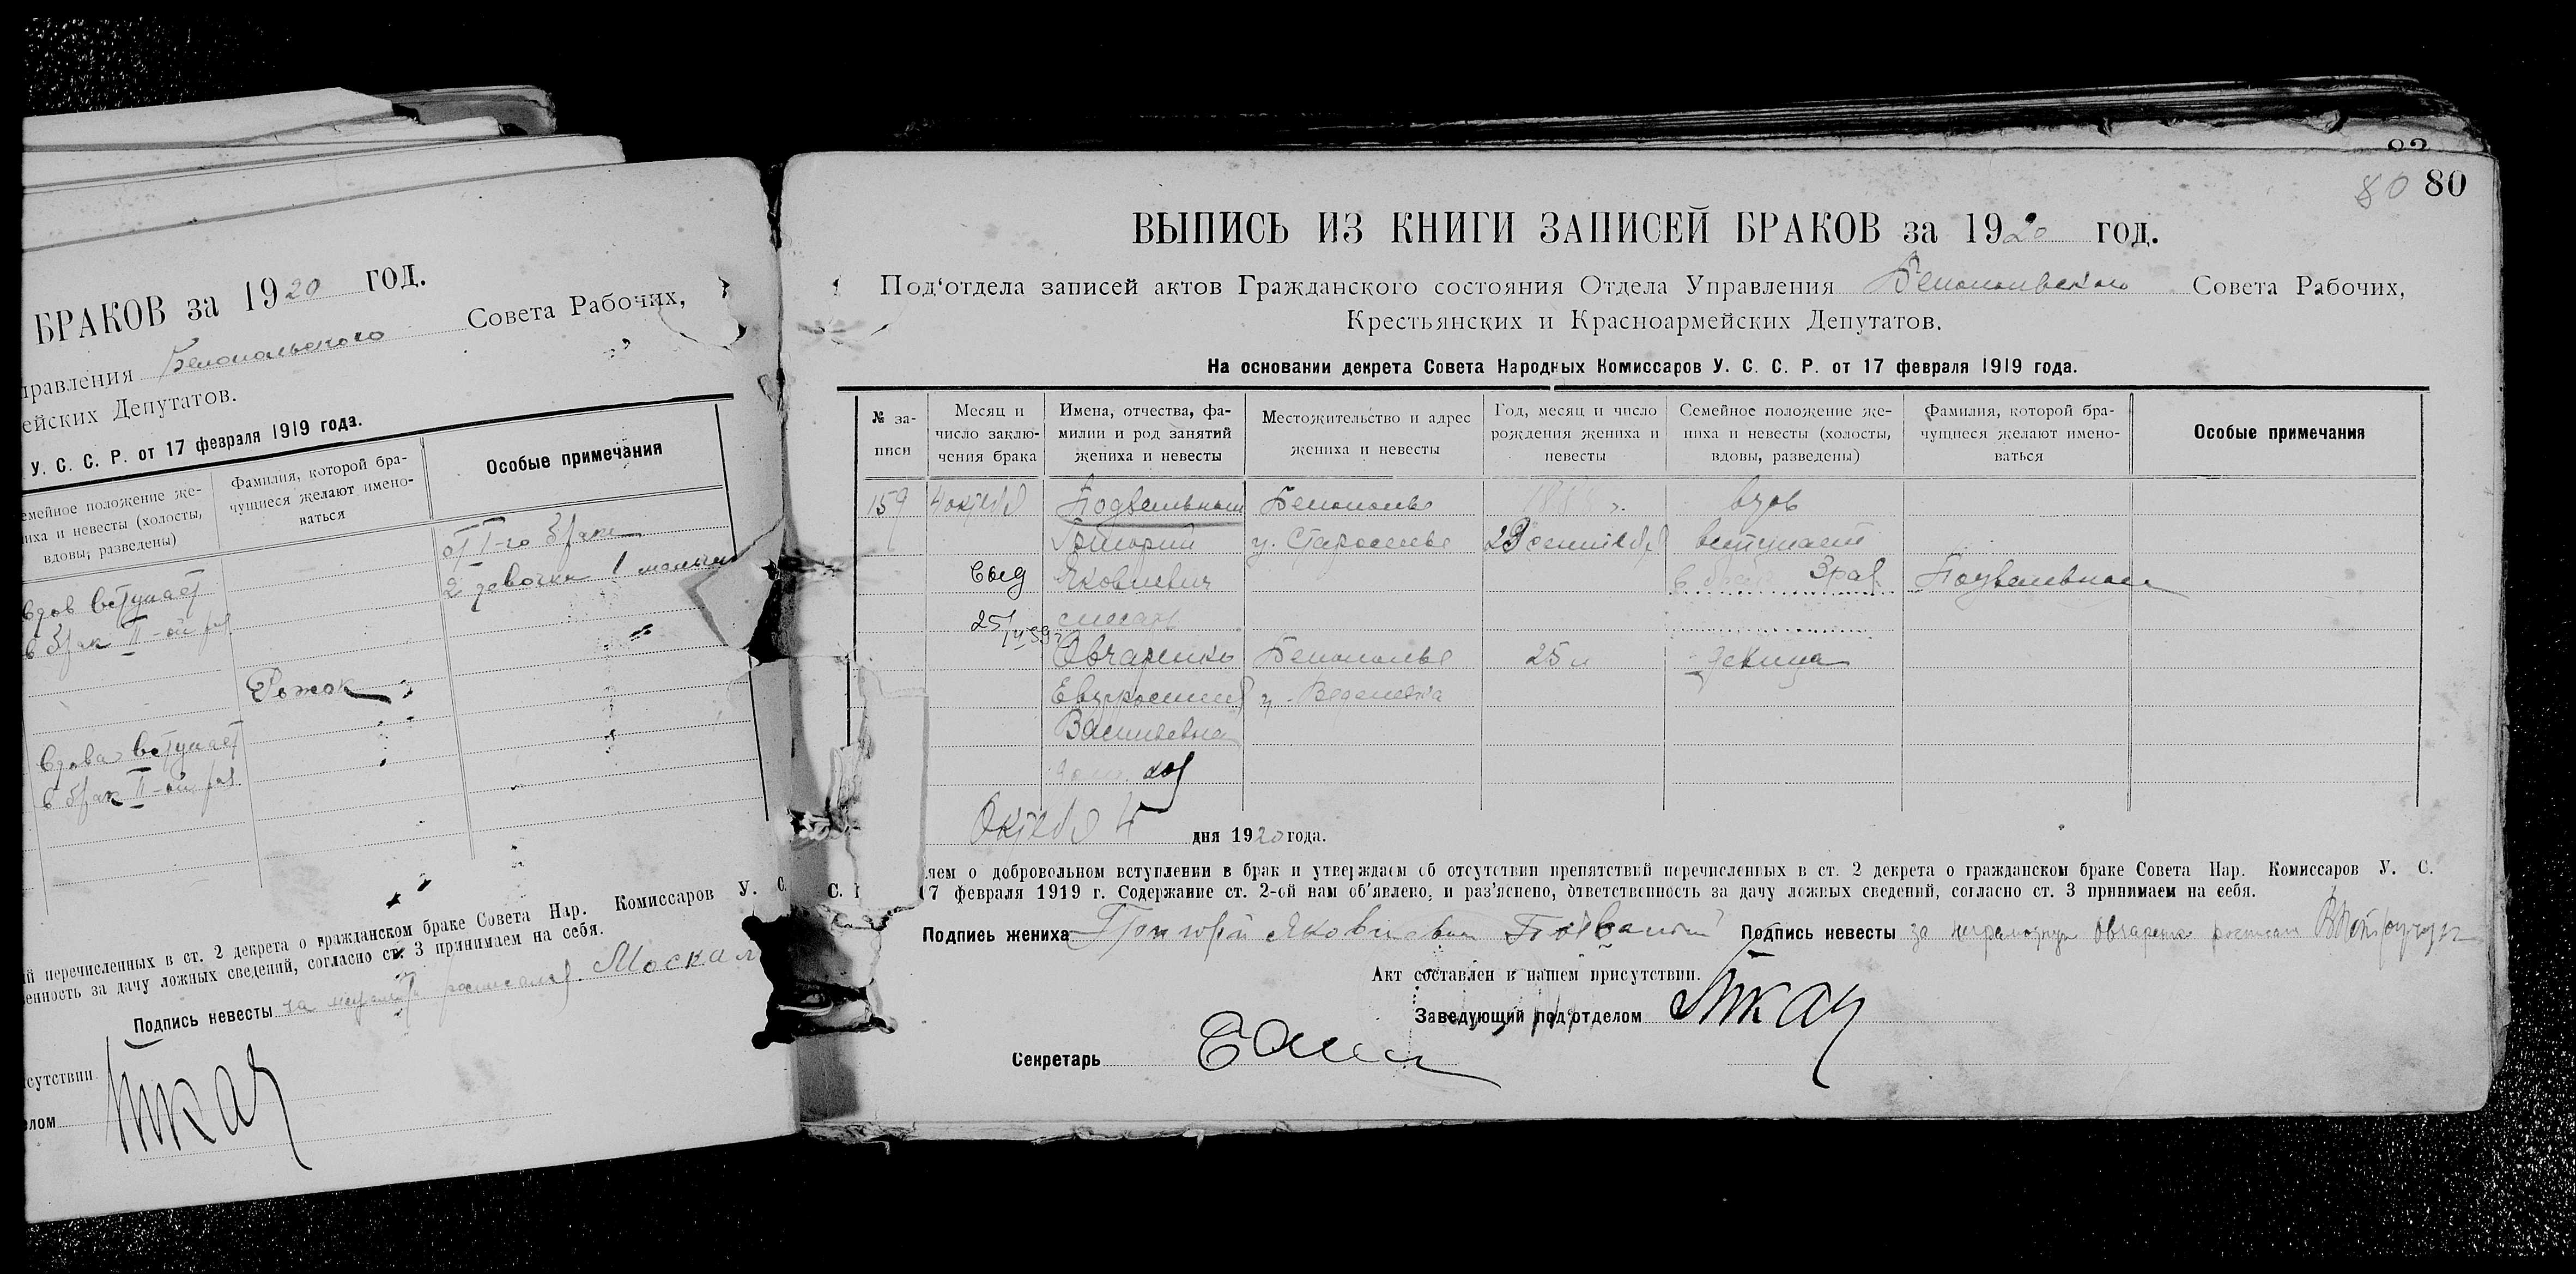 БРАКОВ за 1920 год.
правления Белопольского Совета Рабочих,
ейских Депутатов.
У. С. С. Р. от 17 февраля 1919 года.
емейное положение же-
иха и невесты (холосты,
вдовы, разведены)
Фамилия, которой бра-
чущиеся желают имено-
ваться
Особые примечания
от I-го брака
2 девочки 1 мальчик
вдов вступает
в брак II-ой раз
Рожок
вдова вступает
в брак II-ой раз
ий перечисленных в ст. 2 декрета о гражданском браке Совета Нар. Комиссаров У. С.
енность за дачу ложных сведений, согласно ст. 3 принимаем на себя.
Подпись невесты за расписался Москал
сутствии
елом Ткач
82
80 80
ВЫПИСЬ ИЗ КНИГИ ЗАПИСЕЙ БРАКОВ за 1920 год.
Под'отдела записей актов Гражданского состояния Отдела Управления Белопольского Совета Рабочих,
Крестьянских и Красноармейских Депутатов.
На основании декрета Совета Народных Комиссаров У. С. С. Р. от 17 февраля 1919 года.
№ за-
писи
Месяц и
число заклю-
чения брака
Имена, отчества, фа-
милии и род занятий
жениха и невесты
Местожительство и адрес
жениха и невесты
Год, месяц и число
рождения жениха и
невесты
Семейное положение же-
ниха и невесты (холосты,
вдовы, разведены)
Фамилия, которой бра-
чущиеся желают имено-
ваться
Особые примечания
159 4 октября Подвальный Белополье вдов
Григорий у. Староселье 29 сентября вступает
Яковлевич в брак 3 раз Подвальный
25/ слесарь
Овчаренко Белополье 25 л девица
Евфросиния у.
Васильевна
дом. хоз
Октября 4 дня 1920 года.
яем о добровольном вступлении в брак и утверждаем об отсутствии препятствий перечисленных в ст. 2 декрета о гражданском браке Совета Нар. Комиссаров У. С.
С. 17 февраля 1919 г. Содержание ст. 2-ой нам об'явлено, и раз'яснено, ответственность за дачу ложных сведений, согласно ст. 3 принимаем на себя.
Подпись жениха Григорий Яковлевич Подвальный Подпись невесты за неграмотную Овчаренко расписался
Акт составлен в нашем присутствии.
Заведующий под'отделом Ткач
Секретарь